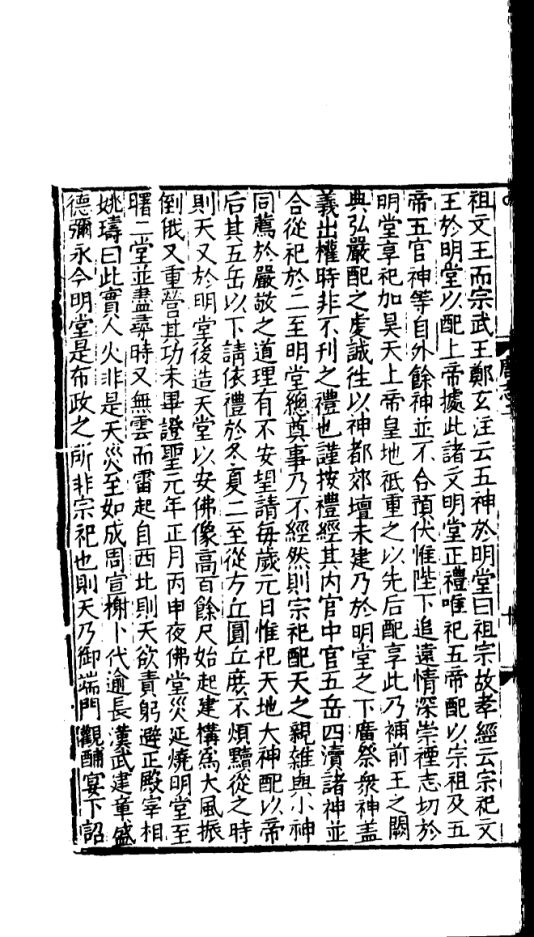 祖文王而宗武王鄭玄注云五神於明堂曰祖宗故孝經云宗祀文
王於明堂以配上帝據此諸文明堂正禮唯祀五帝配以宗祖及五
帝五官神等自外餘神並不合預伏惟陛下追遠情深崇禋志切於
明堂享祀加昊天上帝皇地祇重之以先后配享此乃補前王之闕
典弘嚴配之虔誠往以神都郊壇未建乃於明堂之下廣祭衆神蓋
義出權時非不刊之禮也謹按禮經其內官中官五岳四瀆諸神並
合從祀於二至明堂總奠事乃不經然則宗祀配天之親雜與小神
同薦於嚴敬之道理有不安望請每歲元日惟祀天地大神配以帝
后其五岳以下請依禮於冬夏二至從方丘圓丘庶不煩黷從之時
則天又於明堂後造天堂以安佛像高百餘尺始起建構爲大風振
倒俄又重營其功未畢證聖元年正月丙申夜佛堂災延燒明堂至
曙二堂並盡尋時又無雲而雷起自西北則天欲責躬避正殿宰相
姚璹曰此實人火非是天災至如成周宣榭卜代逾長漢武建章盛
德彌永今明堂是布政之所非宗祀也則天乃御端門觀酺宴下詔